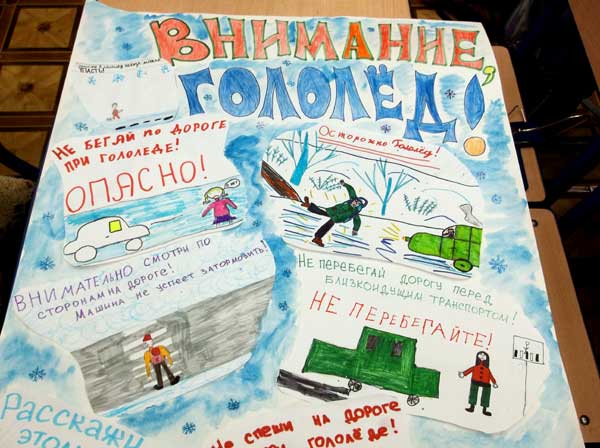 ВНИМАНИЕ,
ГОЛОЛЁД!
НЕ БЕГАЙ ПО ДОРОГЕ
ПРИ ГОЛОЛЕДЕ!
ОПАСНО!
Осторожно Гололёд!
ВНИМАТЕЛЬНО СМОТРИ ПО
СТОРОНАМ НА ДОРОГЕ!
МАШИНА НЕ УСПЕЕТ ЗАТОРМОЗИТЬ!
НЕ ПЕРЕБЕГАЙ ДОРОГУ ПЕРЕД
БЛИЗКОИДУЩИМ ТРАНСПОРТОМ!
НЕ ПЕРЕБЕГАЙТЕ!
Расскажи
этом
Не спеши на дороге
при гололёде!